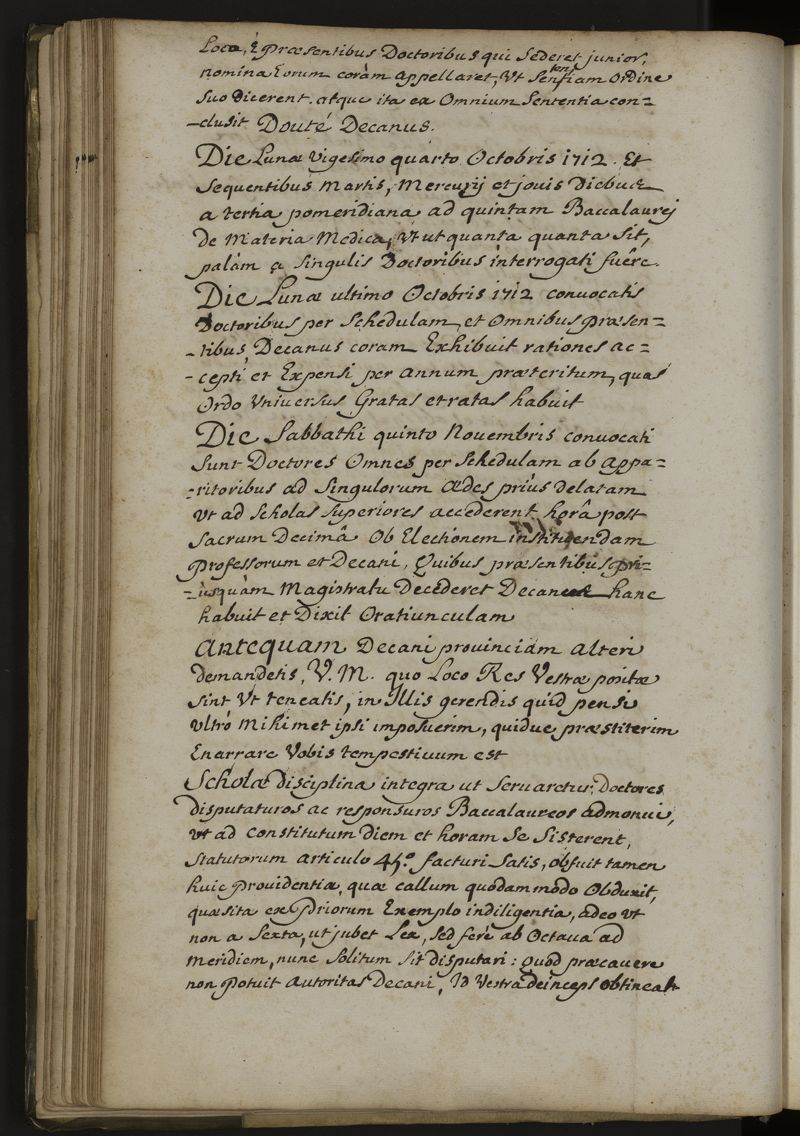 Loco, è Præsentibus Doctoribus qui Sederet junior,
nomina Eorum coràm appellaret, Vt Sententiam Ordine
Suo Dicerent. atque ita ex Omnium Sententia con=
-clusit Douté Decanus.
Die Lunæ vigesimo quarto Octobris 1712. Et
Sequentibus Martis, Mercurij et jouis Diebus
a tertia pomeridiana ad quintam Baccalaurej
de Materia Medica, Vt ut quanta quanta sit,
palàm a singulis Doctoribus interrogati fuêre.
Die Lunæ ultimo Octobris 1712 conuocatis
Doctoribus per Schedulam, et Omnibus præsen=
-tibus, Decanus coram Exhibuit rationes ac=
-cepti et Expensi per annum præteritum, quas
Ordo Vniuersus Gratas et ratas habuit
Die Sabbathi quinto Nouembris conuocati
Sunt Doctores Omnes per Schedulam ab appa=
-ritoribus ad Singulorum Ædes priùs delatam
Vt ad Scholas Superiores accederent horâ post
Sacrum Decimâ Ob Electionem instituendam
Professorum et Decani, Quibus præsentibus pri=
-usquàm Magistratu Decederet Decanus hanc
habuit et Dixit Oratiunculam
Antequam Decani prouinciam alteri
demandetis, V. M. quo Loco Res Vestræ positæ
sint Vt teneatis, in Illis gerendis quid pensi
Vltrò Mihimet ipsi imposuerim, quidue præstiterim
Enarrare Vobis tempestiuum est
Scholæ disciplina integra ut Seruaretur, Doctores
disputaturos ac responsuros Baccalaureos admonui,
vt ad constitutum Diem et horam Se Sisterent,
Statutorum articulo 45.º facturi Satis, obfuit tamen
huic Prouidentiæ, quæ callum quodammodo Obduxit,
quæsita ex Priorum Exemplo indiligentia, adeo vt
non a Sexta, ut jubet Lex, Sed ferè ab Octaua ad
Meridiem, nunc Solitum sit disputari: Quod præcauere
non Potuit Autoritas Decani, Id Vestra deinceps obtineat